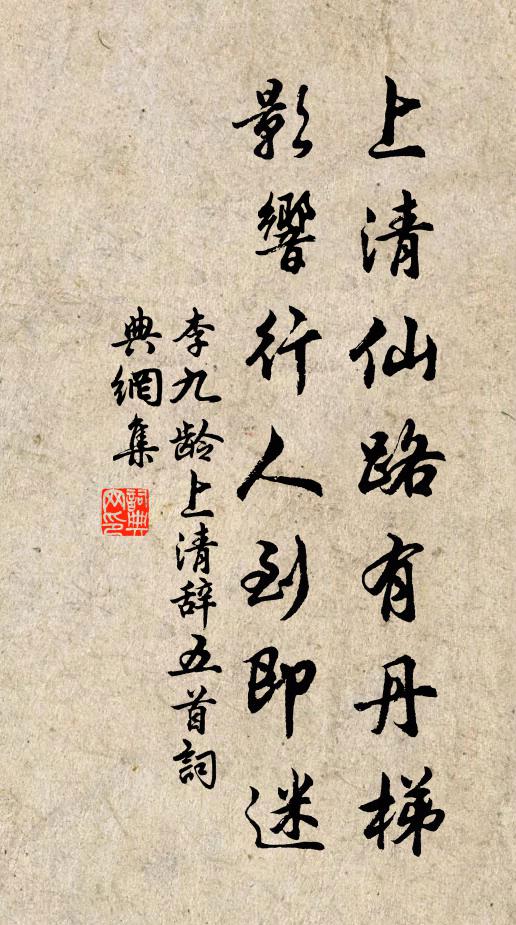 上清仙路有丹梯
影響行人到即迷
李九龄上清辞五首詞
典網集
詞典网印